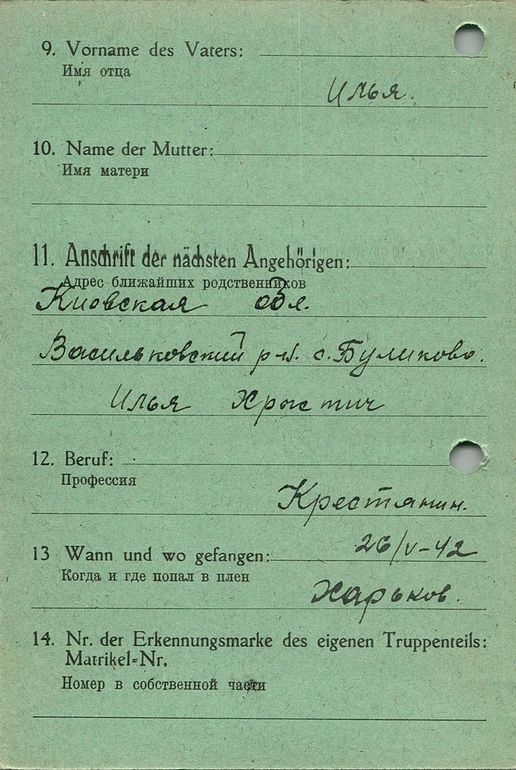 9. Vorname des Vaters:
Имя отца
Илья.
10. Name der Mutter:
Имя матери
11. Anschrift der nächsten Angehörigen:
Адрес ближайших родственников
Киовская обл.
Васильковский р-н. с. Буликово.
Илья Хрыстич
12. Beruf:
Профессия
Крестянин.
13 Wann und wo gefangen:
26/V-42
Когда и где попал в плен
Харьков.
14. Nr. der Erkennungsmarke des eigenen Truppenteils:
Matrikel-Nr.
Номер в собственной части